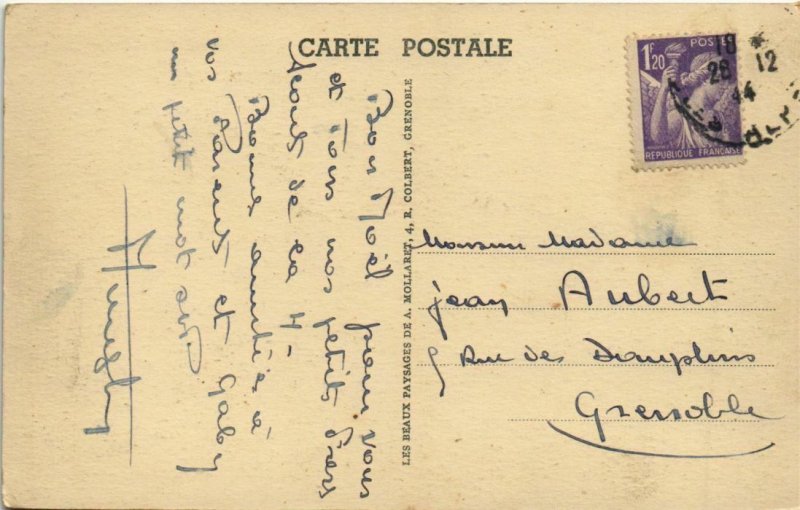 CARTE POSTALE
Bon Noël pour vous
et tous vos petits
de
Bonne amitiés à
vos Parents et Gaby
un petit mot
LES BEAUX PAYSAGES DE A. MOLLARET, 4, R. COLBERT, GRENOBLE
1F20 POSTES
REPUBLIQUE FRANÇAISE
18
28 12
44
Monsieur Madame
Jean Aubert
5 Rue des Dauphins
Grenoble